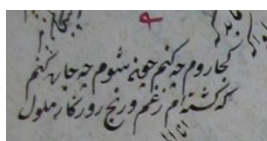 ۹
کجا روم چه کنم چون شوم چه چاره کنم
که گشته‌ام ز غم و رنج روزگار ملول